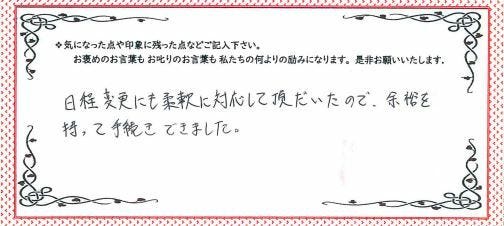 ❖気になった点や印象に残った点などご記入下さい。
お褒めのお言葉も お叱りのお言葉も 私たちの何よりの励みになります。是非お願いいたします.
日程変更にも柔軟に対応して頂だいたので、余裕を
持って手続きできました。